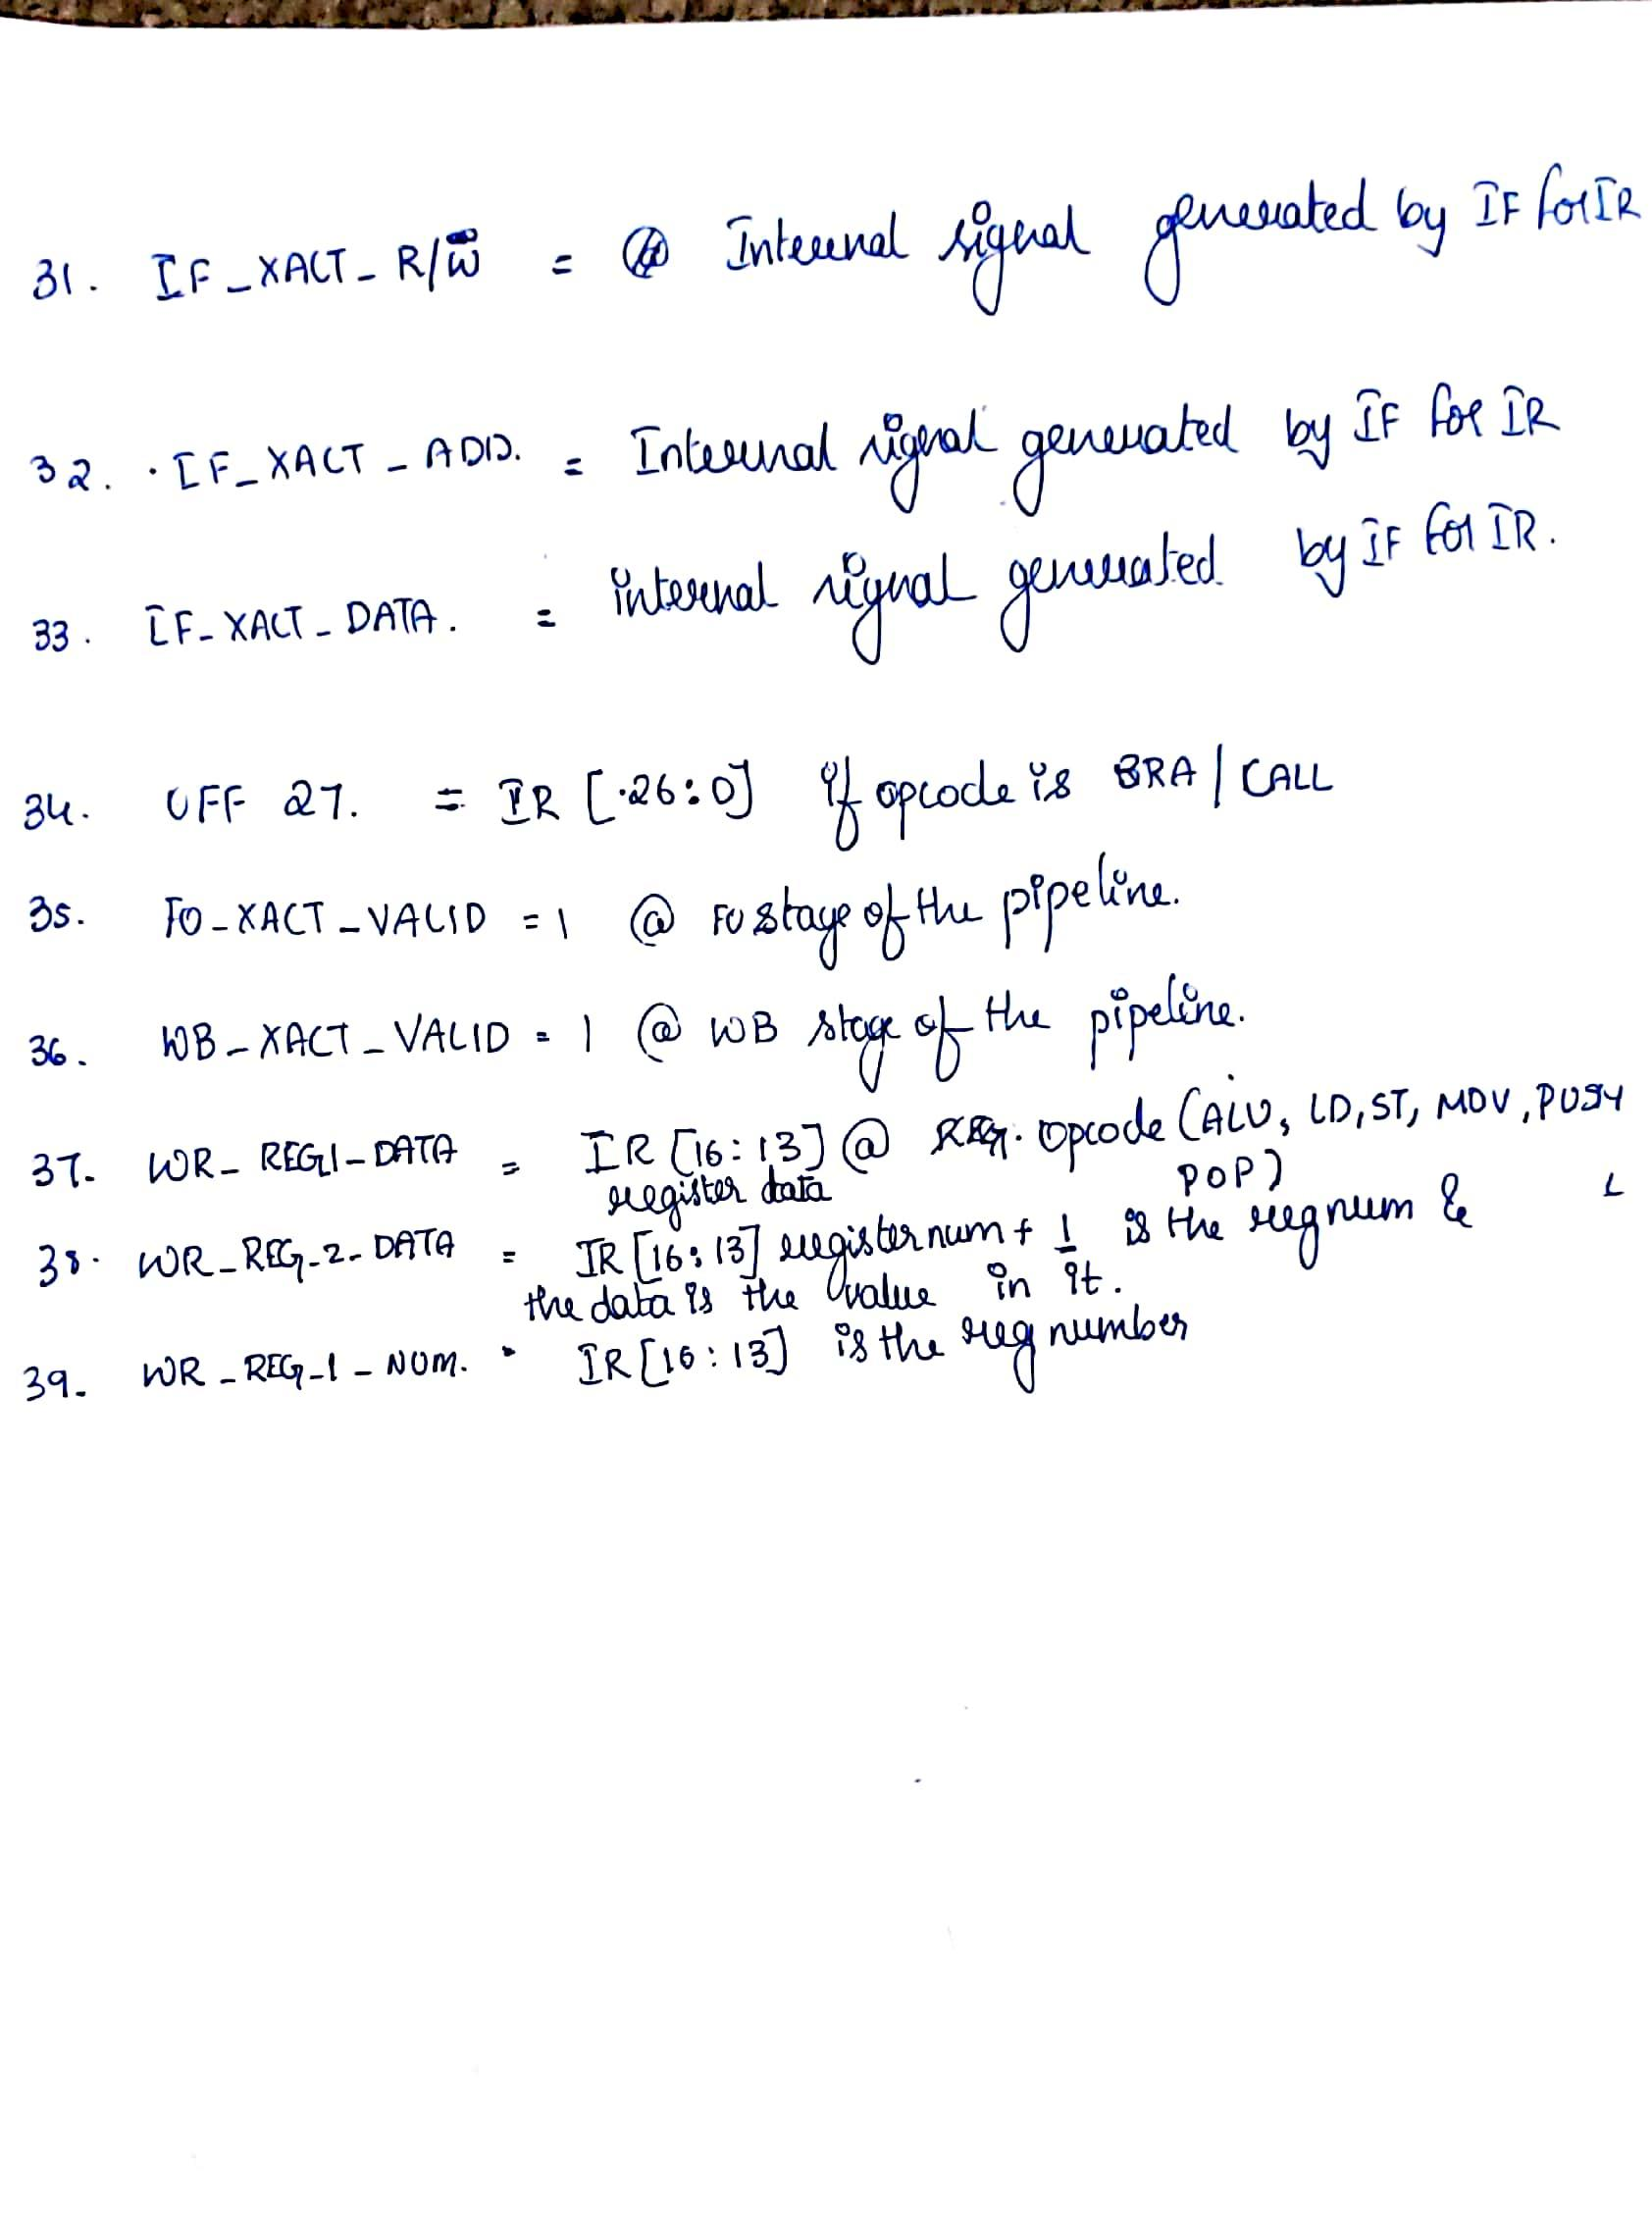 31. IF_XACT_R/W̅ = Internal signal generated by IF for IR
32. IF_XACT_ADD. = Internal signal generated by IF for IR
33. IF_XACT_DATA. = internal signal generated by IF for IR.
34. OFF 27. = IR [26:0] if opcode is BRA / CALL
35. FO_XACT_VALID = 1 @ FO stage of the pipeline.
36. WB_XACT_VALID = 1 @ WB stage of the pipeline.
37. WR_REG1_DATA = IR [16:13] @ opcode (ALU, LD, ST, MOV, PUSH
register data POP)
38. WR_REG_2_DATA = IR [16:13] register num + 1 is the reg num &
the data is the value in it.
39. WR_REG_1_NUM. IR [16:13] is the reg number